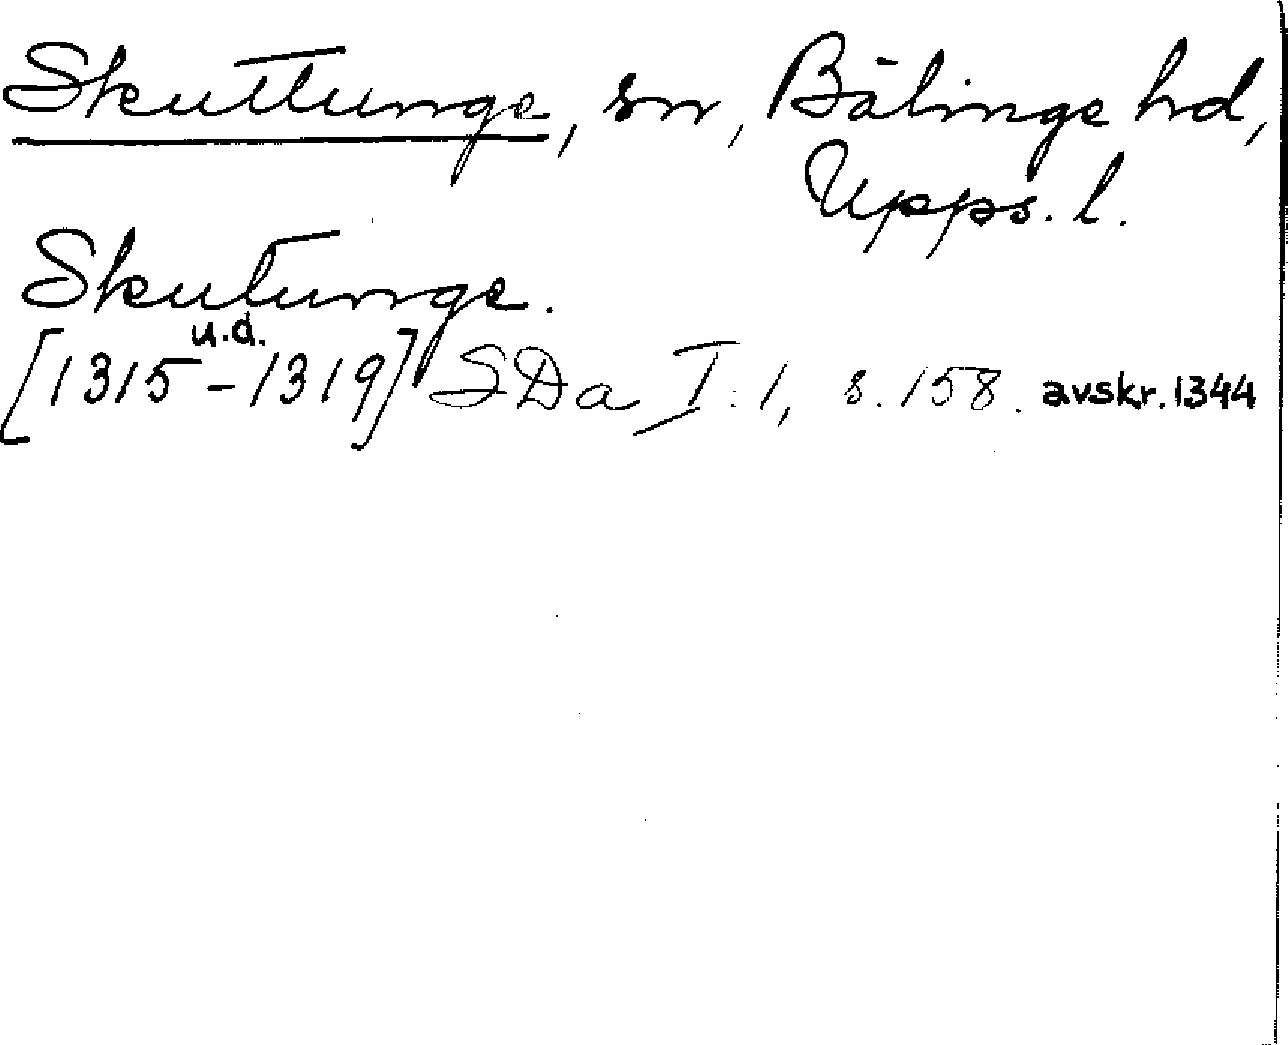 Skuttunge, sn, Bälinge hd,
Upps. l.
Skutunge.
u.d.
[1315-1319] SDa I:1, s. 158. avskr. 1344